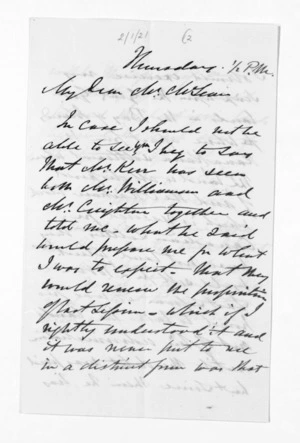 2/1/21 62
Thursday ½ P.M.
My Dear Mr. McLean
In case I should not be
able to see you I beg to say
that Mr. Kerr has seen
both Mr. Williamson and
Mr. Creighton together and
told me what she said
would prepare me for what
I was to expect - that they
would renew the proposition
of last Session - which if I
rightly understood it and
it was never put to me
in a distinct form was that